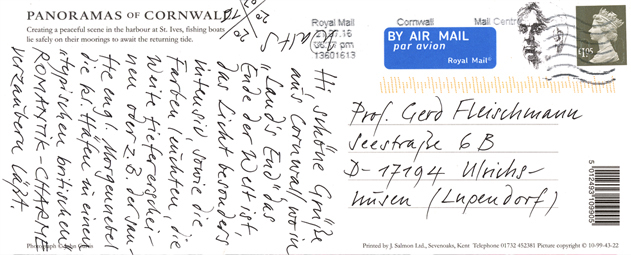 PANORAMAS OF CORNWALL
Creating a peaceful scene in the harbour at St. Ives, fishing boats
lie safely on their moorings to await the returning tide.
Hi, schöne Grüße
aus Cornwall, wo in
"Land's End" das
Ende der Welt ist
das Licht besonders
intensiv sowie die
Farben leuchten, die
Weite tiefer erschei-
nen oder z.B. der
He engl. Morgennebel
die k. Häfen in einen
"typischen britischen"
ROMANTIK-CHARME
verzaubern läßt.
Photograph
Royal Mail
Cornwall
Mail Centre
pm
13601613
BY AIR MAIL
par avion
Royal Mail
Prof. Gerd Fleischmann
Seestraße 6 B
D-17194 Ulrichs-
husen (Lupendorf)
5 012493 109905
Printed by J. Salmon Ltd., Sevenoaks, Kent Telephone 01732 452381 Picture copyright © 10-99-43-22